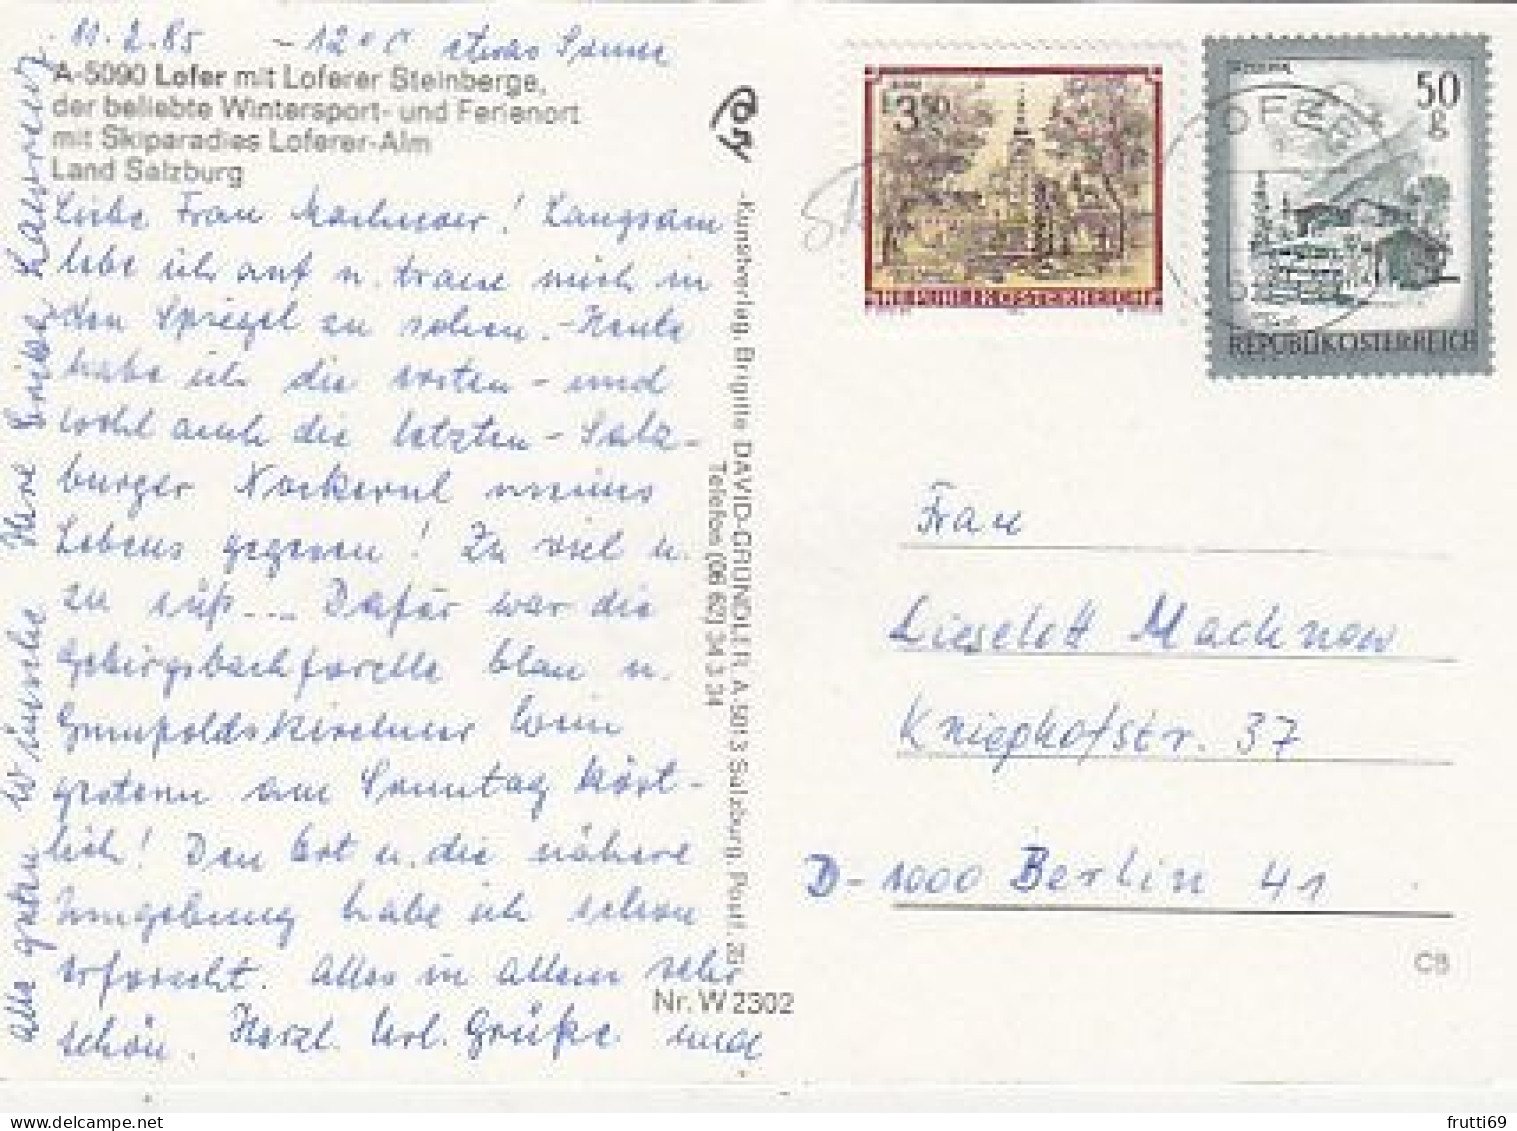 11.2.85 -12°C etwas Sonne
A-5090 Lofer mit Loferer Steinberge,
der beliebte Wintersport- und Ferienort
mit Skiparadies Loferer-Alm
Land Salzburg
Liebe Frau Machnow! Langsam
lebe ich auf u. traue mich in
den Spiegel zu sehen. - Heute
habe ich die ersten - und
wohl auch die letzten - Salz-
burger Nockerul meines
Lebens gegessen! Zu viel u.
zu süß... Dafür war die
Gebirgsbachforelle blau u.
Gumpoldskirchner Wein
gestern am Sonntag köst-
lich! Den Ort u. die nähere
Umgebung habe ich schon
erforscht. Alles in allem sehr
schön. Herzl. Url. Grüße und
alle guten Wünsche Ihre
Kunstverlag, Brigitte DAVID-GRÜNDLER, A-5013 Salzburg, Postf. 28
Telefon (06 62) 34 3 34
Nr. W 2302
3.50
REPUBLIK ÖSTERREICH
50
g
REPUBLIK ÖSTERREICH
LOFER
Frau
Lieselott Machnow
Kniephofstr. 37
D-1000 Berlin 41
CB
frutti69